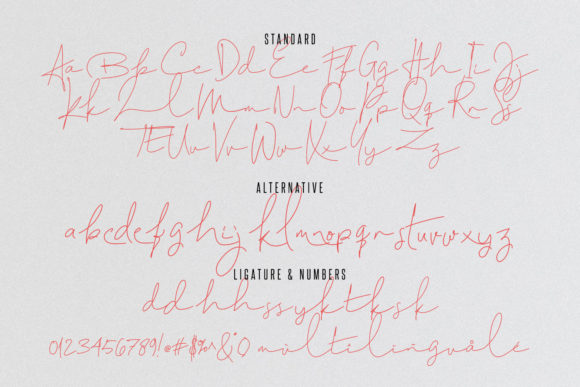 STANDARD
Aa Bb Cc Dd Ee Ff Gg Hh Ii Jj
Kk Ll Mm Nn Oo Pp Qq Rr Ss
Tt Uu Vv Ww Xx Yy Zz
ALTERNATIVE
abcdefghijklmnopqrstuvwxyz
LIGATURE & NUMBERS
dd hh ss yk tk sk
0123456789!@#$%^&*() multilingüåle